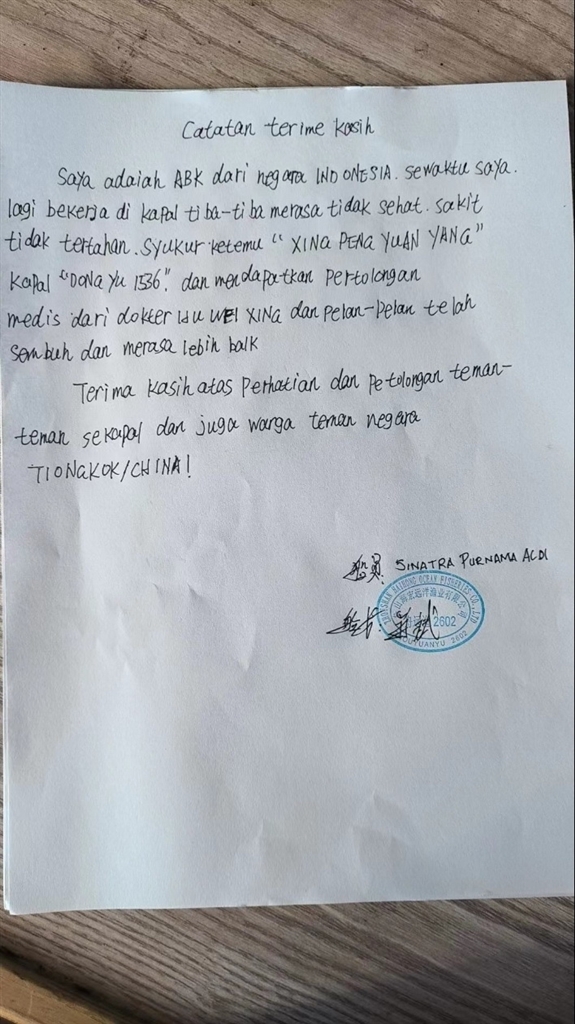 Catatan terime kasih
Saya adaiah ABK dari negara INDONESIA. sewaktu saya.
lagi bekerja di kapal tiba-tiba merasa tidak sehat. sakit
tidak tertahan. Syukur ketemu "XING PENG YUAN YANG"
Kapal "DONG YU 1536". dan mendapatkan Pertolongan
medis dari dokter WEI XING dan Pelan-Pelan telah
sembuh dan merasa lebih baik
Terima kasih atas Perhatian dan Petolongan teman-
teman sekapal dan juga warga teman negara
TIONGKOK/CHINA!
SINATRA PURNAMA ALDI
OCEAN FISHERIES CO., LTD
2602
YUANYU 2602